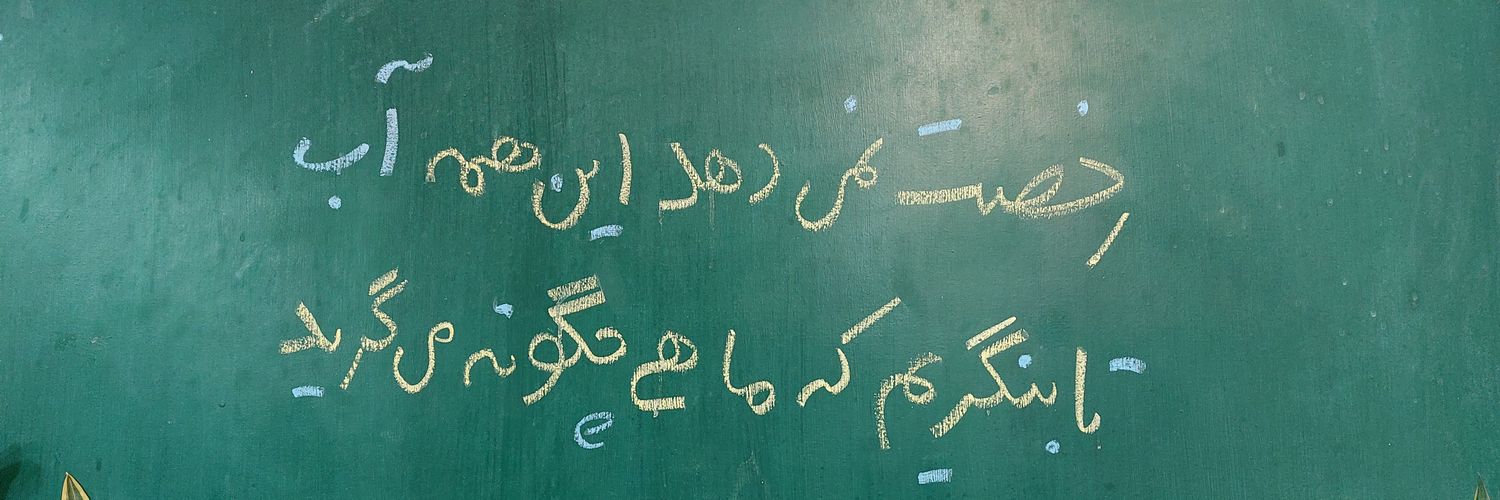 رخصت نمی دهد این همه آب
تا بنگریم که ماهی چگونه می گرید